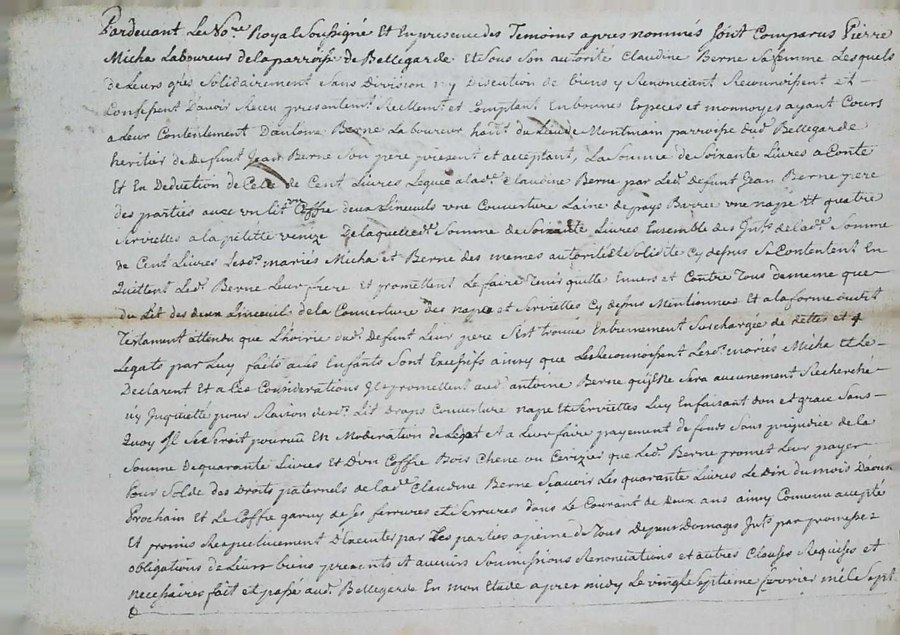 Pardevant Le No.re Royal Soussigné Et En presence des Temoins apres nommés sont Comparus Pierre
Micha Laboureur de la parroisse de Bellegarde Et Sous Son autorité Claudine Berne Sa femme Lesquels
de Leurs grés Solidairement Sans Division ny Discution de biens y Renonciant Reconnoissent et
Confessent Davoir Receu presentem.t Reellem.t et Comptant En bonnes Especes et monnoyes ayant Cours
a Leur Contentement Dantoine Berne Laboureur habt. du Lieu de Montmain parroisse dud. Bellegarde
heritier de defunt Jean Berne Son pere present et acceptant, La Somme de Soixante Livres a Conte
Et En Deduction de Celle de Cent Livres Leguée a lad.e Claudine Berne par Led. defunt Jean Berne pere
des parties avec un lit un Coffre deux Linceuls une Couverture Laine de pays une nape Et quatre
Serviettes a la petitte venize De laquelle d. Somme de Soixante Livres Ensemble des Jnts. de lad.e Somme
de Cent Livres Lesd. mariés Micha et Berne des memes autorité et Solidité Cy dessus Se Contentent En
Quittent Led. Berne Leur frere Et promettent Le faire Tenir quitte Envers et Contre Tous de meme que
du Lit des deux Linceuils de la Couverture des nape et Serviettes Cy dessus Mentionnées Et a la forme dudit
Testament attendu que L'hoirie dud. Defunt Leur pere Est trouvée Entierement Surchargée de dettes et
Legats par Luy faits a Ses Enfants Sont Excessifs ainsy que Le Reconnoissent Lesd. mariés Micha et Le
Declarent Et a Ces Considerations Jls promettent aud. antoine Berne qu'il Ne Sera aucunement Recherché
ny Jnquietté pour Raison desd. Lit draps Couverture nape Et Serviettes Luy En faisant don et grace Sans
Quoy Jl Se Seroit pourvu En Moderation de Legat Et a Leur faire payement de fonds Sans prejudice de la
Somme De quarante Livres Et D'un Coffre Bois Chene ou Cerizier que Led. Berne promet Leur payer
Pour Solde des Droits paternels de lad.e Claudine Berne Scavoir Les quarante Livres Le Dix du mois Daoust
Prochain Et Le Coffre garny de Ses ferrures et Serrures dans Le Courant de Deux ans ainsy Convenu accepté
Et promis Respectivement D'Executer par Les parties a peine de Tous Depens Domages Jnts. par promesse
obligations de Leurs biens presents Et avenirs Soumissions Renonciations et autres Clauses Requises et
necessaires fait et passé aud. Bellegarde En mon Etude apres midy Le vingt Septieme fevrier mil Sept